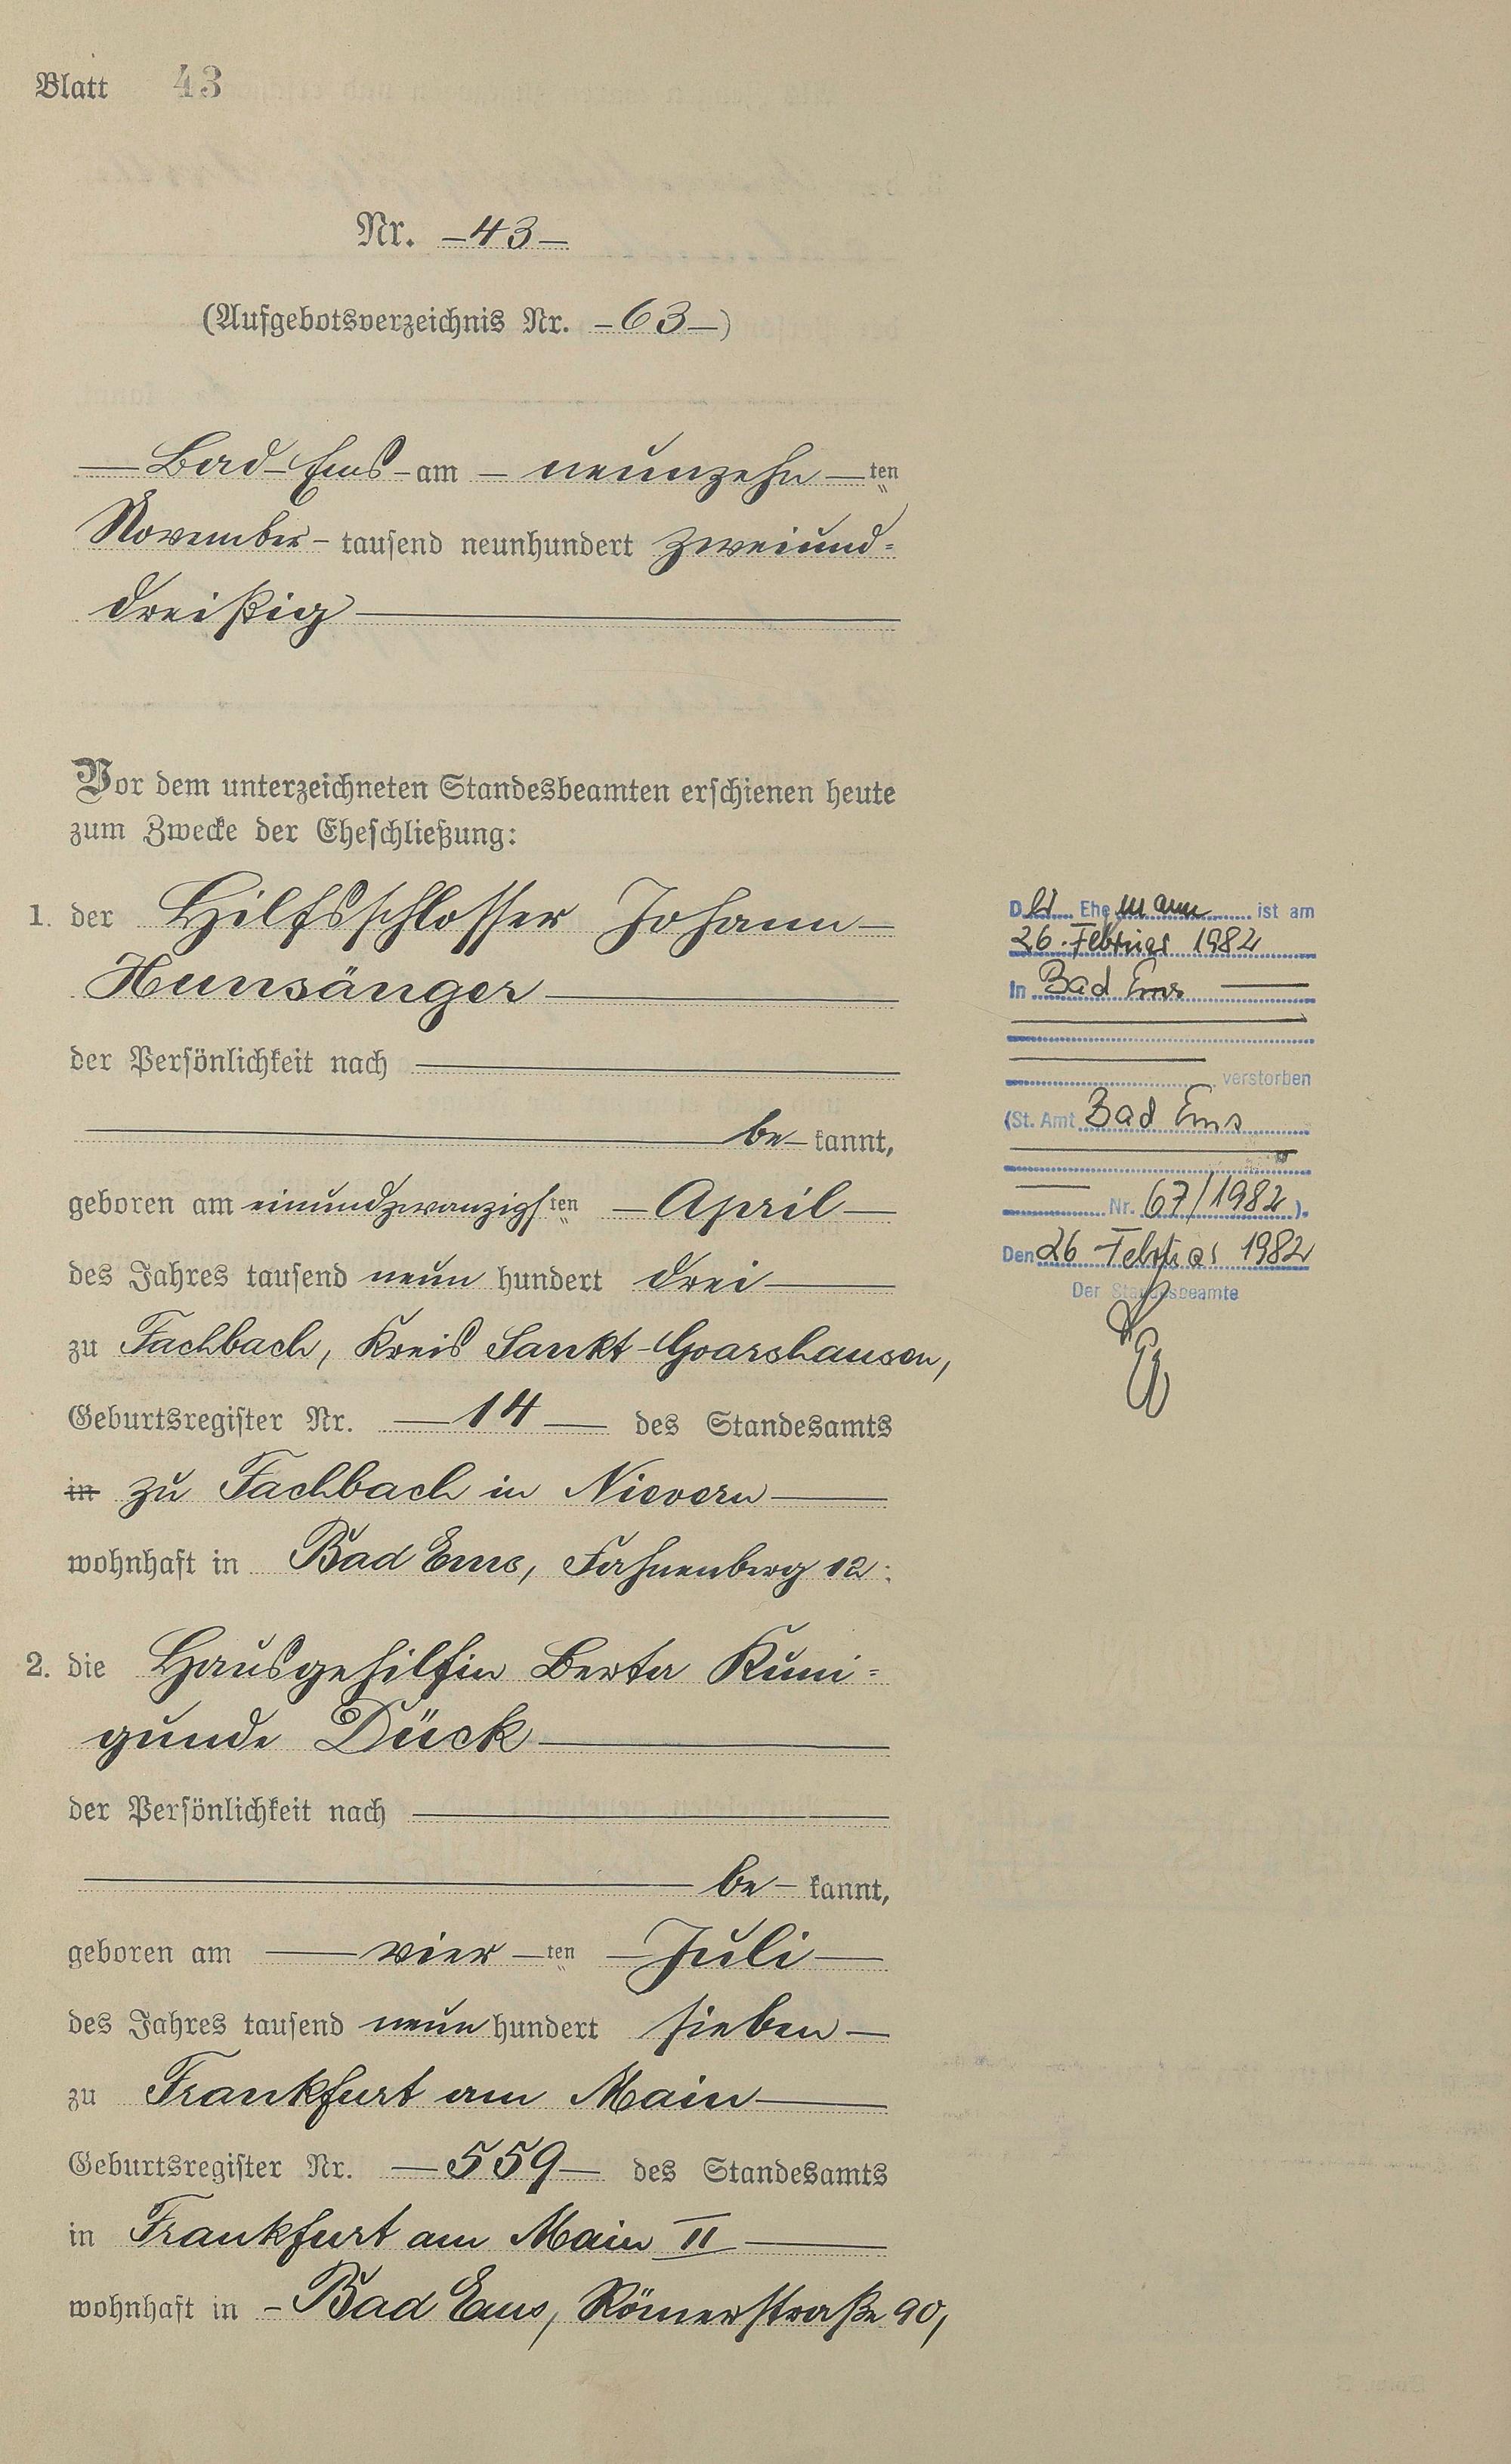 Blatt 43
Nr. -43-
(Aufgebotsverzeichnis Nr. -63-)
Bad-Ems-am - neunzehn-ten
November- tausend neunhundert zweiund=
dreißig
Vor dem unterzeichneten Standesbeamten erschienen heute
zum Zwecke der Eheschließung:
1. der Hilfsschlosser Johann
Hunsänger
der Persönlichkeit nach
be-kannt,
geboren am einundzwanzigsten April
des Jahres tausend neun hundert drei
zu Fachbach, Kreis Sankt-Goarshausen,
Geburtsregister Nr. -14- des Standesamts
in zu Fachbach in Nievern
wohnhaft in Bad Ems, Fahnenberg 12.
2. die Hausgehilfin Berta Kuni=
gunde Dück
der Persönlichkeit nach
be-kannt,
geboren am vier-ten Juli
des Jahres tausend neun hundert sieben
zu Frankfurt am Main
Geburtsregister Nr. -559- des Standesamts
in Frankfurt am Main II
wohnhaft in -Bad Ems, Römerstraße 90,
Der Ehemann ist am
26. Februar 1982
in Bad Ems
verstorben
(St. Amt Bad Ems
Nr. 67/1982).
Den 26 Februar 1982
Der Standesbeamte